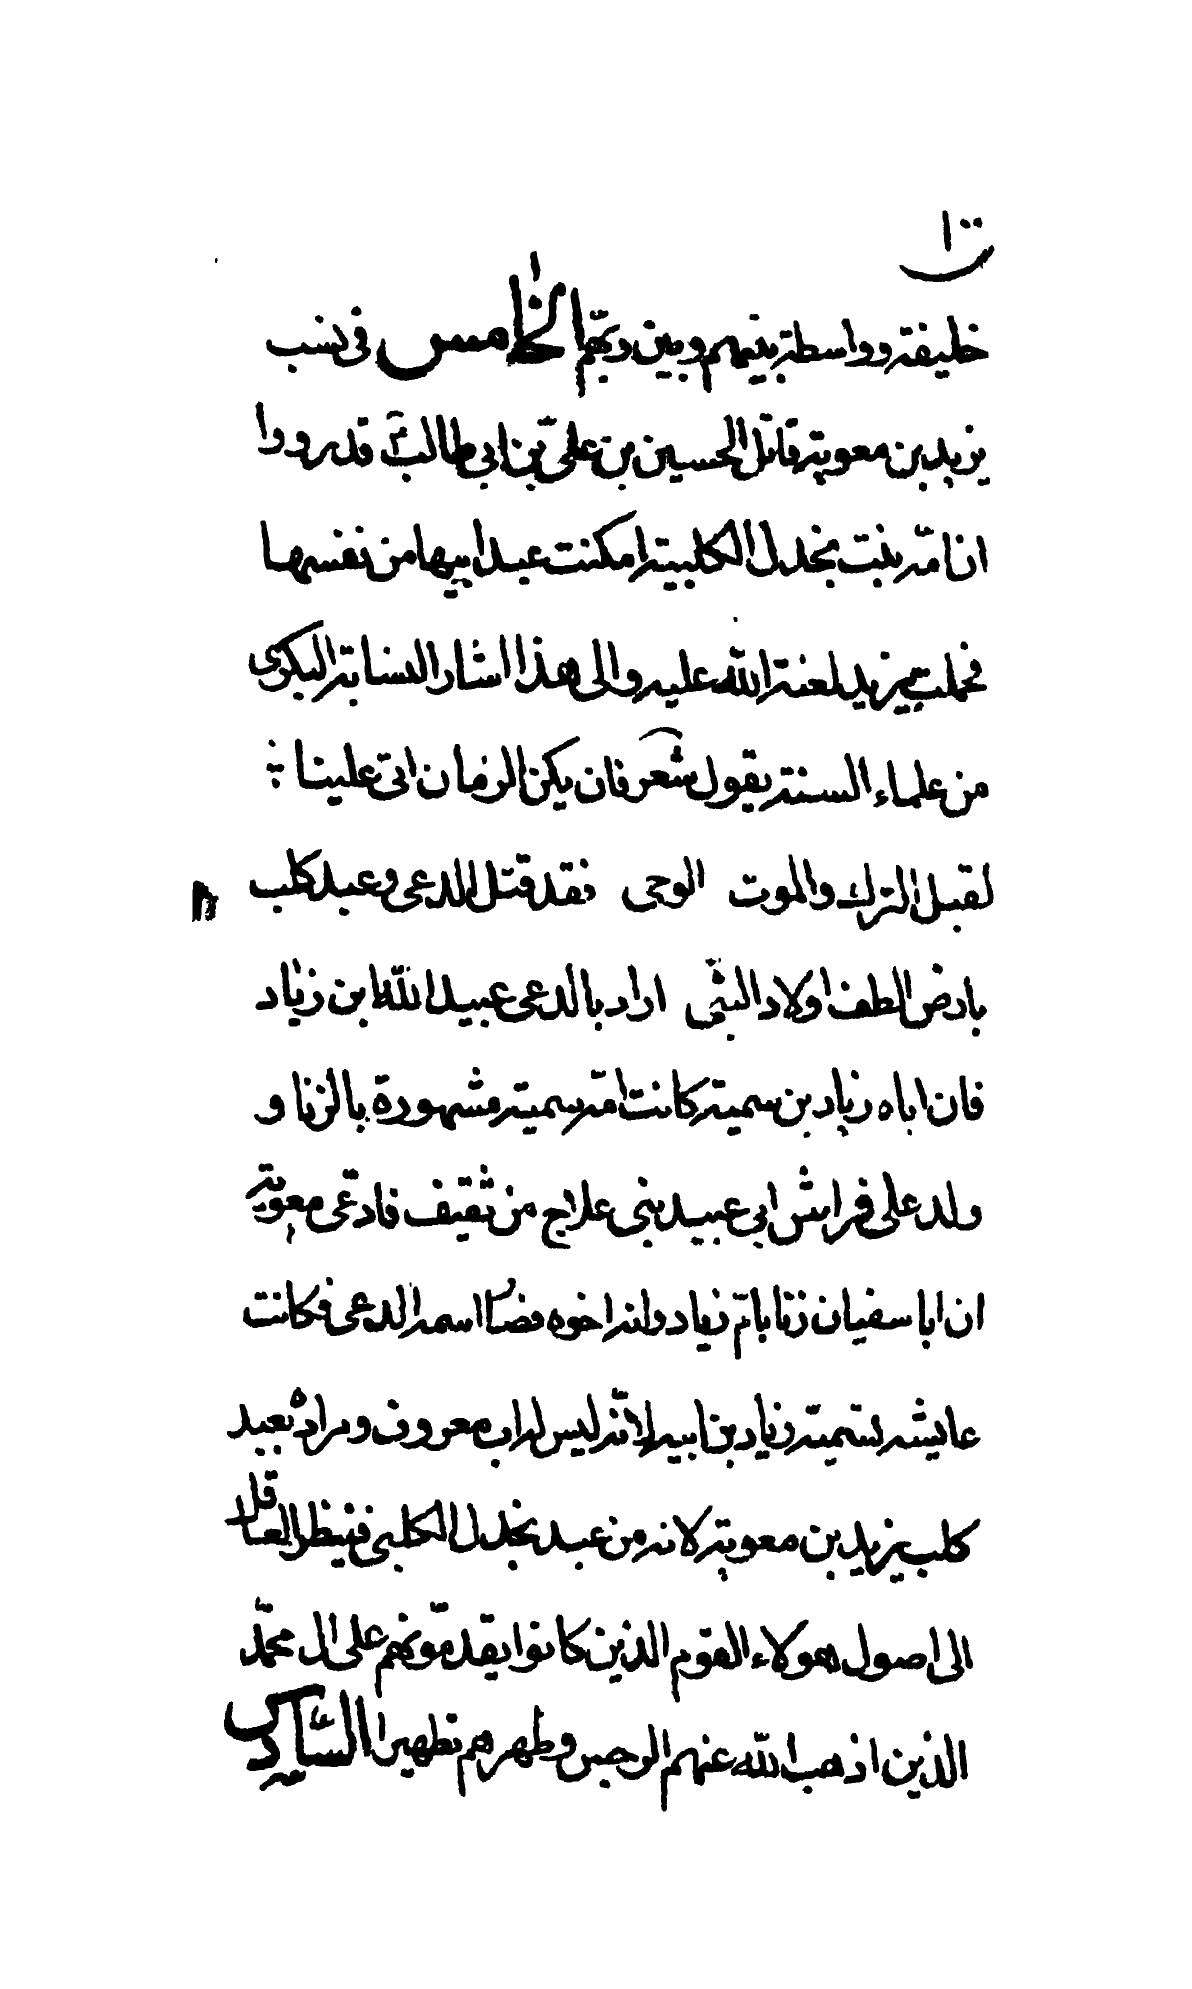 خليفة وواسطة بينهم وبين ربّهم الخامس في نسب
يزيد بن معوية قاتل الحسين بن علي بن ابي طالب ع قد رووا
ان امّه بنت بجدل الكلبية امكنت عبد ابيها من نفسها
فحملت بيزيد لعنة الله عليه والى هذا اشار النسابة البكرى
من علماء السنة يقول شعر فان يكن الزمان اتى علينا
لقبل الترك والموت الوحى فقد قتل الدعى وعبد كلب
بارض الطف اولاد النبّى اراد بالدعى عبيد الله ابن زياد
فان اباه زياد بن سمية كانت امّه سمية مشهورة بالزنا و
ولد على فراش ابي عبيد بنى علاج من ثقيف فادّعى معوية
ان ابا سفيان زنا بامّ زياد وانه اخوه فصار اسمه الدعى فكانت
عايشه تسميّه زياد بن ابيه لانّه ليس له اب معروف ومراده بعبد
كلب يزيد بن معوية لانه من عبد بجدل الكلبى فلينظر العاقل
الى اصول هولاء القوم الذين كانوا يقدمّونهم على ال محمّد
الذين اذهب الله عنهم الرجس وطهرهم تطهيرا السّادس